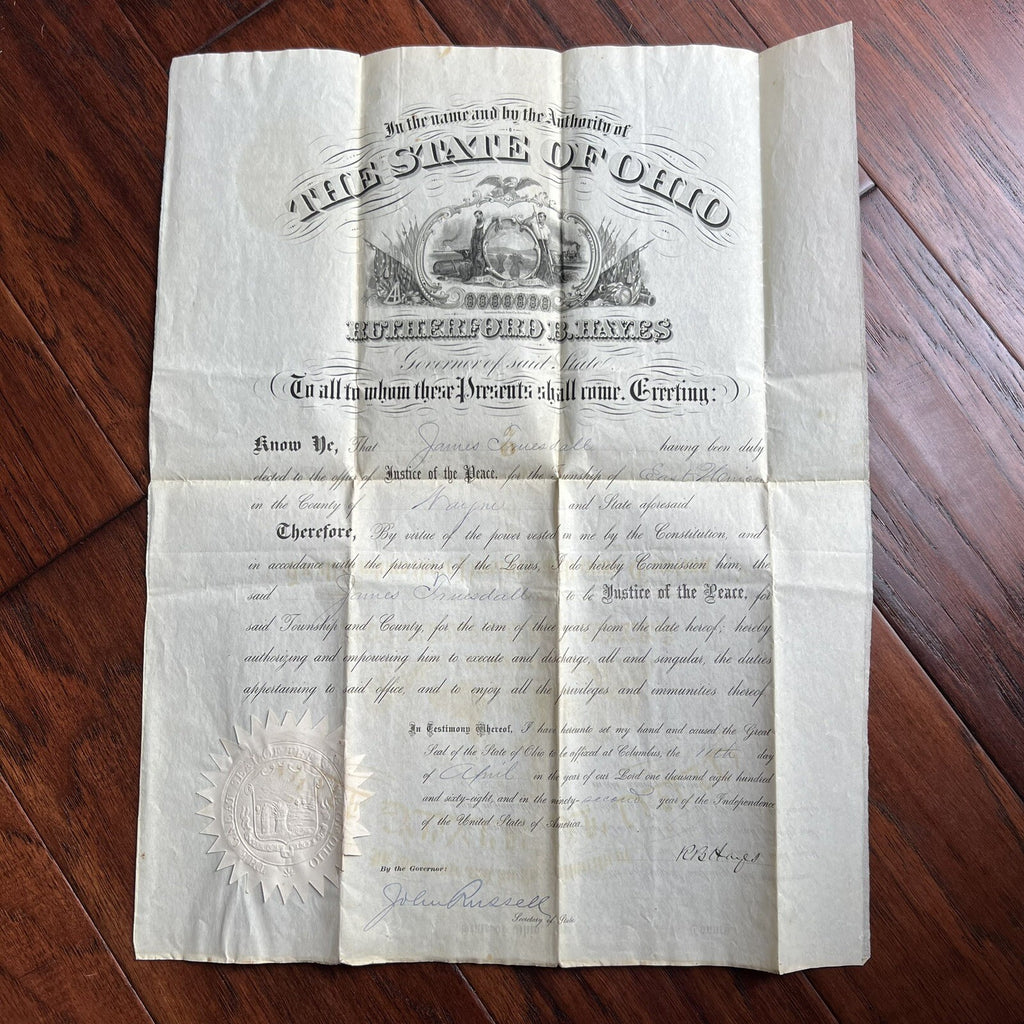 In the name and by the Authority of
THE STATE OF OHIO
RUTHERFORD B. HAYES
Governor of said State
To all to whom these Presents shall come, Greeting:
Know Ye, That James Truesdall having been duly
elected to the office of Justice of the Peace, for the Township of East Union
in the County of Wayne and State aforesaid.
Therefore, By virtue of the power vested in me by the Constitution, and
in accordance with the provisions of the Laws, I do hereby Commission him, the
said James Truesdall to be Justice of the Peace, for
said Township and County, for the term of three years from the date hereof; hereby
authorizing and empowering him to execute and discharge, all and singular, the duties
appertaining to said office, and to enjoy all the privileges and immunities thereof.
In Testimony Whereof, I have hereunto set my hand and caused the Great
Seal of the State of Ohio to be affixed at Columbus, the day
of April in the year of our Lord one thousand eight hundred
and sixty-eight, and in the ninety-second year of the Independence
of the United States of America.
R B Hayes
By the Governor:
John Russell
Secretary of State
THE GREAT SEAL OF THE STATE OF OHIO